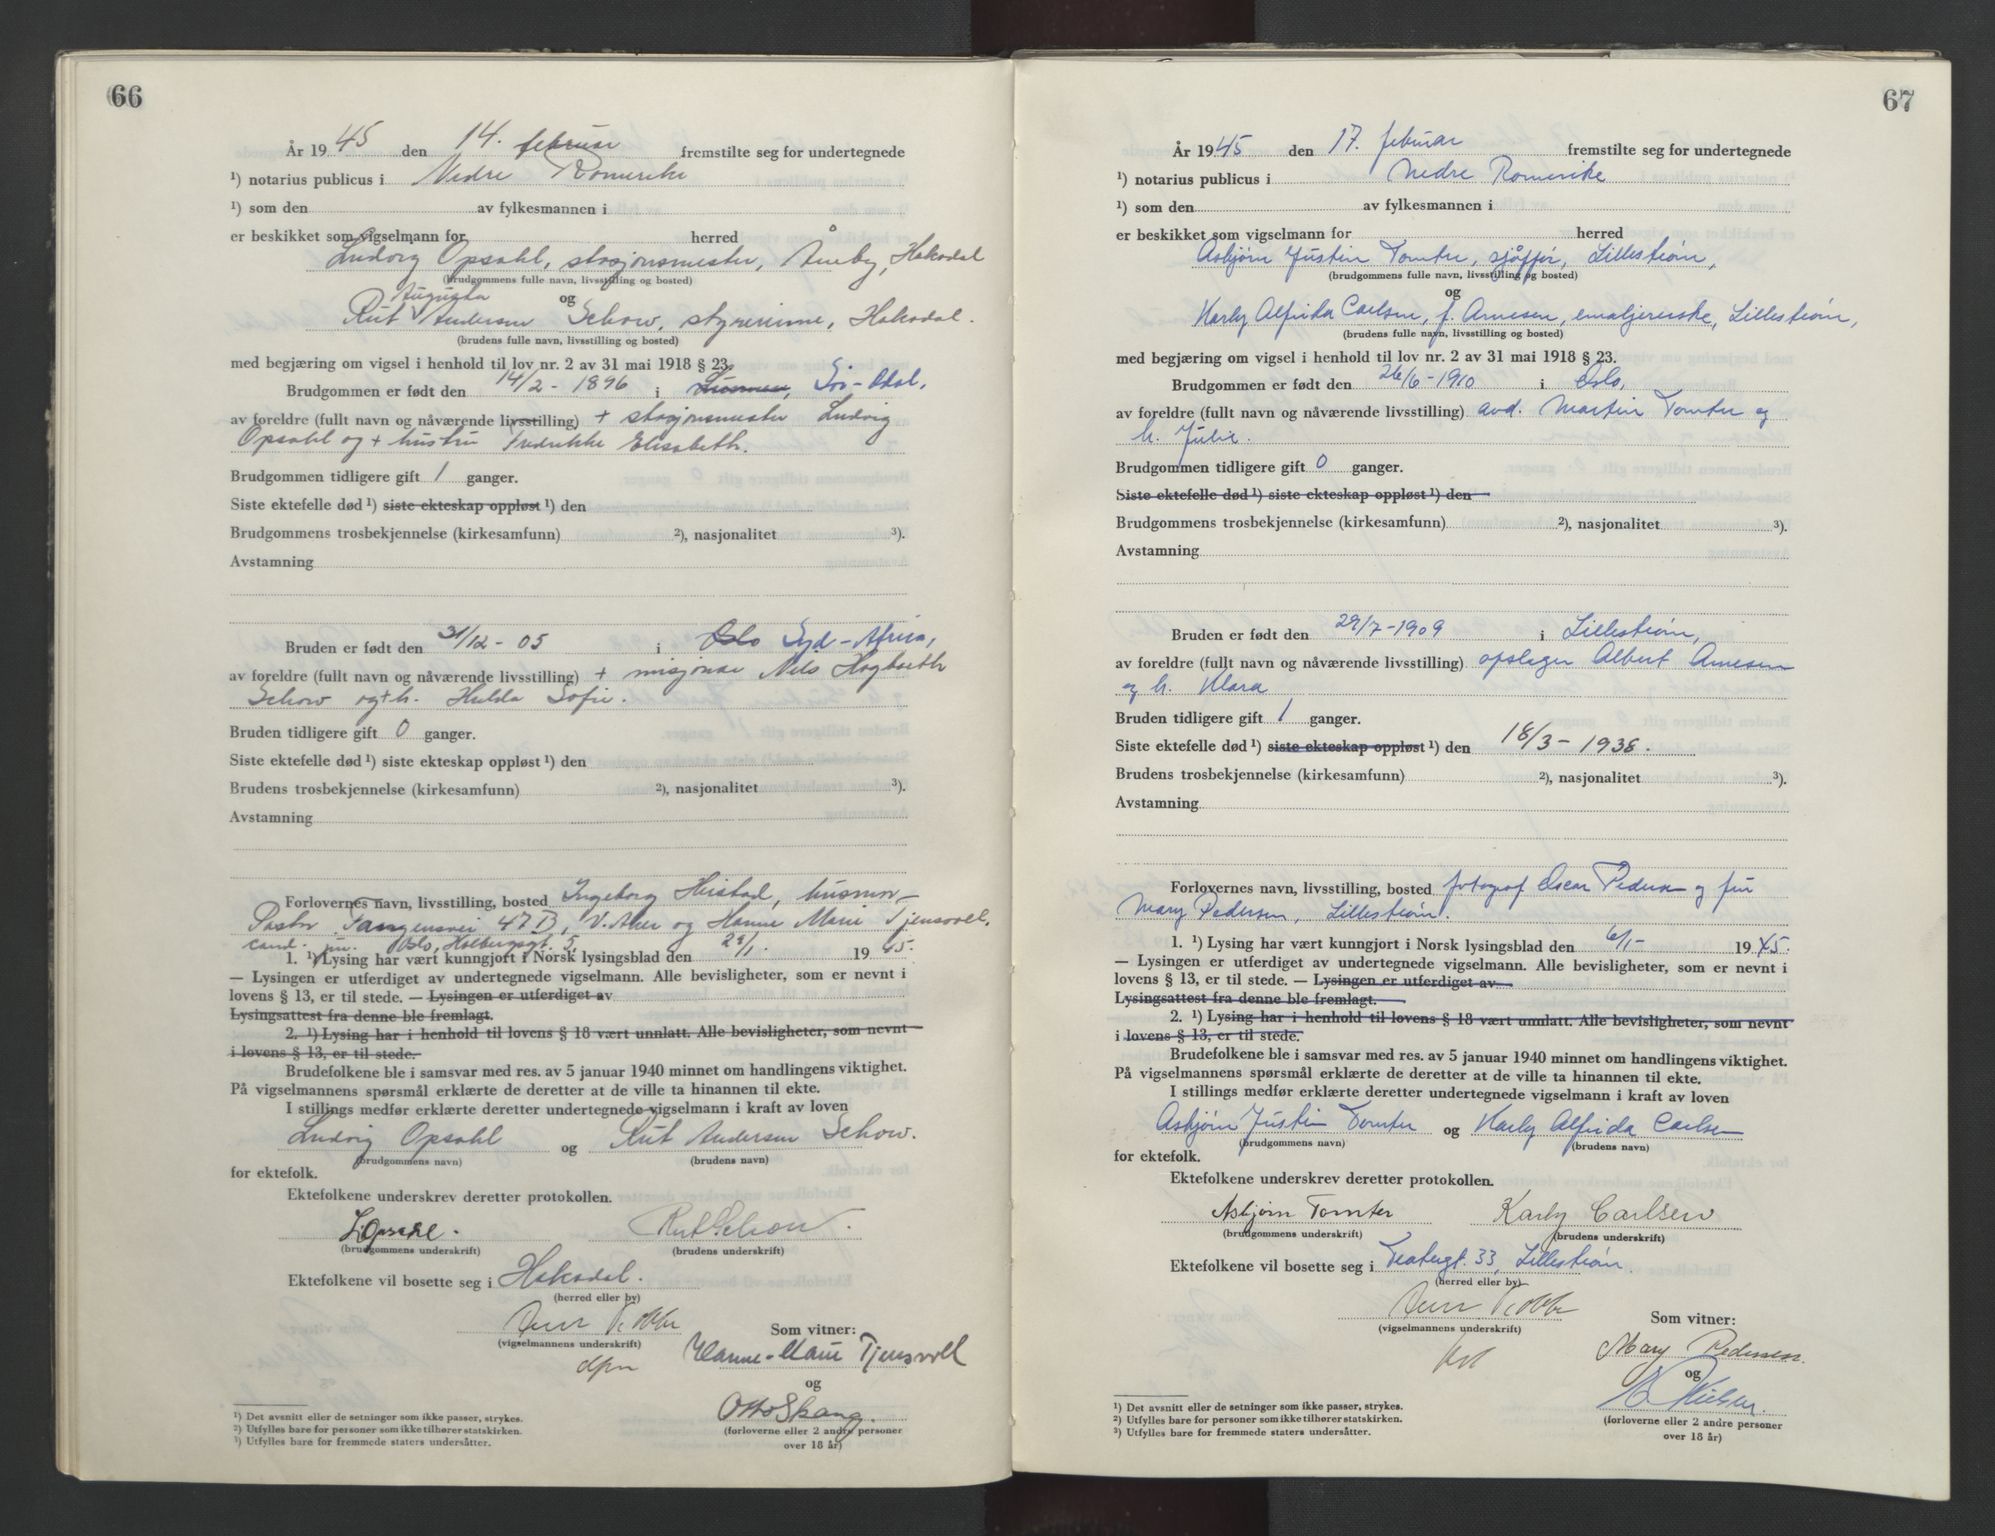 66
År 1945 den 14. februar fremstilte seg for undertegnede
¹) notarius publicus i Nedre Romerike
¹) som den av fylkesmannen i
er beskikket som vigselmann for herred
Ludvig Opsahl, stasjonsmester, Åneby, Hakadal
(brudgommens fulle navn, livsstilling og bosted)
Augusta og
Rut Andersen Schow, styrerinne, Hakadal.
(brudens fulle navn, livsstilling og bosted)
med begjæring om vigsel i henhold til lov nr. 2 av 31 mai 1918 § 23.
Brudgommen er født den 14/2 - 1896 i Sør-Odal,
av foreldre (fullt navn og nåværende livsstilling) + stasjonsmester Ludvig
Opsahl og + hustru Fredrikke Elisabeth.
Brudgommen tidligere gift 1 ganger.
Siste ektefelle død ¹) siste ekteskap oppløst ¹) den
Brudgommens trosbekjennelse (kirkesamfunn) ²), nasjonalitet ³).
Avstamning
Bruden er født den 31/12 - 05 i Oslo Syd-Africa,
av foreldre (fullt navn og nåværende livsstilling) + misjonær Nils
Schow og + h. Hulda Sofie.
Bruden tidligere gift 0 ganger.
Siste ektefelle død ¹) siste ekteskap oppløst ¹) den
Brudens trosbekjennelse (kirkesamfunn) ²), nasjonalitet ³).
Avstamning
Forlovernes navn, livsstilling, bosted Ingeborg Heistad, husmor
Pastor Fangensvei 47 B, V. Aker og Hanne Marie Tjensvoll,
cand. jur. Oslo, Holbergsgt. 5,
1. ¹) Lysing har vært kunngjort i Norsk lysingsblad den 1945.
— Lysingen er utferdiget av undertegnede vigselmann. Alle bevisligheter, som er nevnt i
lovens § 13, er til stede. — Lysingen er utferdiget av
Lysingsattest fra denne ble fremlagt.
2. ¹) Lysing har i henhold til lovens § 18 vært unnlatt. Alle bevisligheter, som nevnt
i lovens § 13, er til stede.
Brudefolkene ble i samsvar med res. av 5 januar 1940 minnet om handlingens viktighet.
På vigselmannens spørsmål erklærte de deretter at de ville ta hinannen til ekte.
I stillings medfør erklærte deretter undertegnede vigselmann i kraft av loven
Ludvig Opsahl og Rut Andersen Schow.
(brudgommens navn) (brudens navn)
for ektefolk.
Ektefolkene underskrev deretter protokollen.
L Opsahl. Rut Schow.
(brudgommens underskrift) (brudens underskrift)
Ektefolkene vil bosette seg i Hakadal.
(herred eller by)
Som vitner:
(vigselmannens underskrift)
Hanne-Marie Tjensvoll
og
Otto Skang.
¹) Det avsnitt eller de setninger som ikke passer, strykes.
²) Utfylles bare for personer som ikke tilhører statskirken.
³) Utfylles bare for fremmede staters undersåtter.
(forloverne eller 2 andre personer
over 18 år)
67
År 1945 den 17. februar fremstilte seg for undertegnede
¹) notarius publicus i Nedre Romerike
¹) som den av fylkesmannen i
er beskikket som vigselmann for herred
Asbjørn Justin Tomter, sjåfør, Lillestrøm,
(brudgommens fulle navn, livsstilling og bosted)
og
Karly Alfrida Carlsen, f. Arnesen, emaljererske, Lillestrøm,
(brudens fulle navn, livsstilling og bosted)
med begjæring om vigsel i henhold til lov nr. 2 av 31 mai 1918 § 23.
Brudgommen er født den 26/6 - 1910 i Oslo,
av foreldre (fullt navn og nåværende livsstilling) avd. Martin Tomter og
h. Julie.
Brudgommen tidligere gift 0 ganger.
Siste ektefelle død ¹) siste ekteskap oppløst ¹) den
Brudgommens trosbekjennelse (kirkesamfunn) ²), nasjonalitet ³).
Avstamning
Bruden er født den 29/7 - 1909 i Lillestrøm,
av foreldre (fullt navn og nåværende livsstilling) opslager Albert Arnesen
og h. Klara
Bruden tidligere gift 1 ganger.
Siste ektefelle død ¹) siste ekteskap oppløst ¹) den 18/3 - 1938.
Brudens trosbekjennelse (kirkesamfunn) ²), nasjonalitet ³).
Avstamning
Forlovernes navn, livsstilling, bosted fotograf Oscar Pedersen og fru
Mary Pedersen, Lillestrøm.
1. ¹) Lysing har vært kunngjort i Norsk lysingsblad den 6/1- 1945.
— Lysingen er utferdiget av undertegnede vigselmann. Alle bevisligheter, som er nevnt i
lovens § 13, er til stede. — Lysingen er utferdiget av
Lysingsattest fra denne ble fremlagt.
2. ¹) Lysing har i henhold til lovens § 18 vært unnlatt. Alle bevisligheter, som nevnt
i lovens § 13, er til stede.
Brudefolkene ble i samsvar med res. av 5 januar 1940 minnet om handlingens viktighet.
På vigselmannens spørsmål erklærte de deretter at de ville ta hinannen til ekte.
I stillings medfør erklærte deretter undertegnede vigselmann i kraft av loven
Asbjørn Justin Tomter og Karly Alfrida Carlsen
(brudgommens navn) (brudens navn)
for ektefolk.
Ektefolkene underskrev deretter protokollen.
Asbjørn Tomter Karly Carlsen
(brudgommens underskrift) (brudens underskrift)
Ektefolkene vil bosette seg i Teatergt. 33, Lillestrøm.
(herred eller by)
Som vitner:
(vigselmannens underskrift)
Mary Pedersen.
og
¹) Det avsnitt eller de setninger som ikke passer, strykes.
²) Utfylles bare for personer som ikke tilhører statskirken.
³) Utfylles bare for fremmede staters undersåtter.
(forloverne eller 2 andre personer
over 18 år)